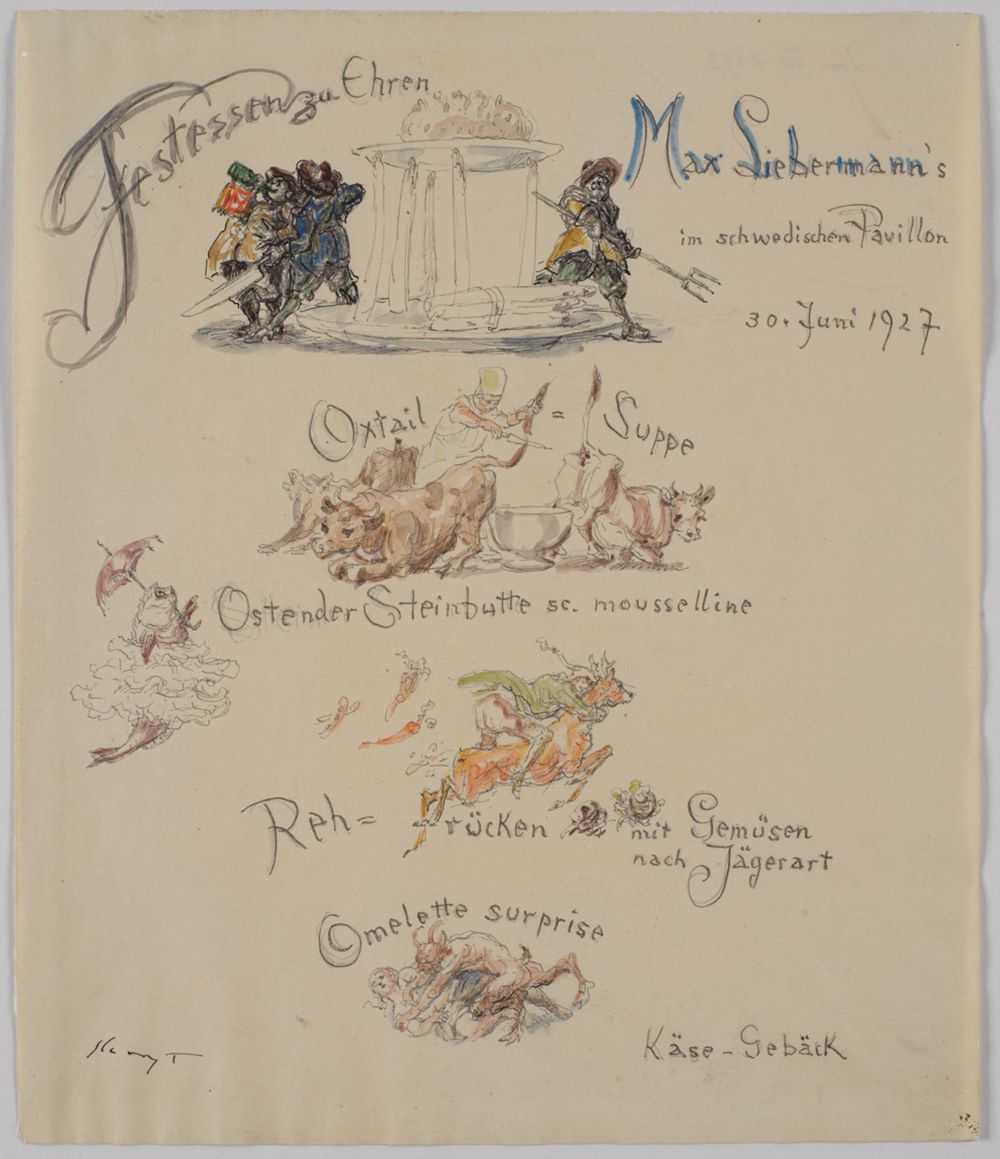 Festessen zu Ehren
Max Liebermann's
im schwedischen Pavillon
30. Juni 1927
Oxtail = Suppe
Ostender Steinbutte sc. mousselline
Reh = rücken mit Gemüsen
nach Jägerart
Omelette surprise
Käse - Gebäck